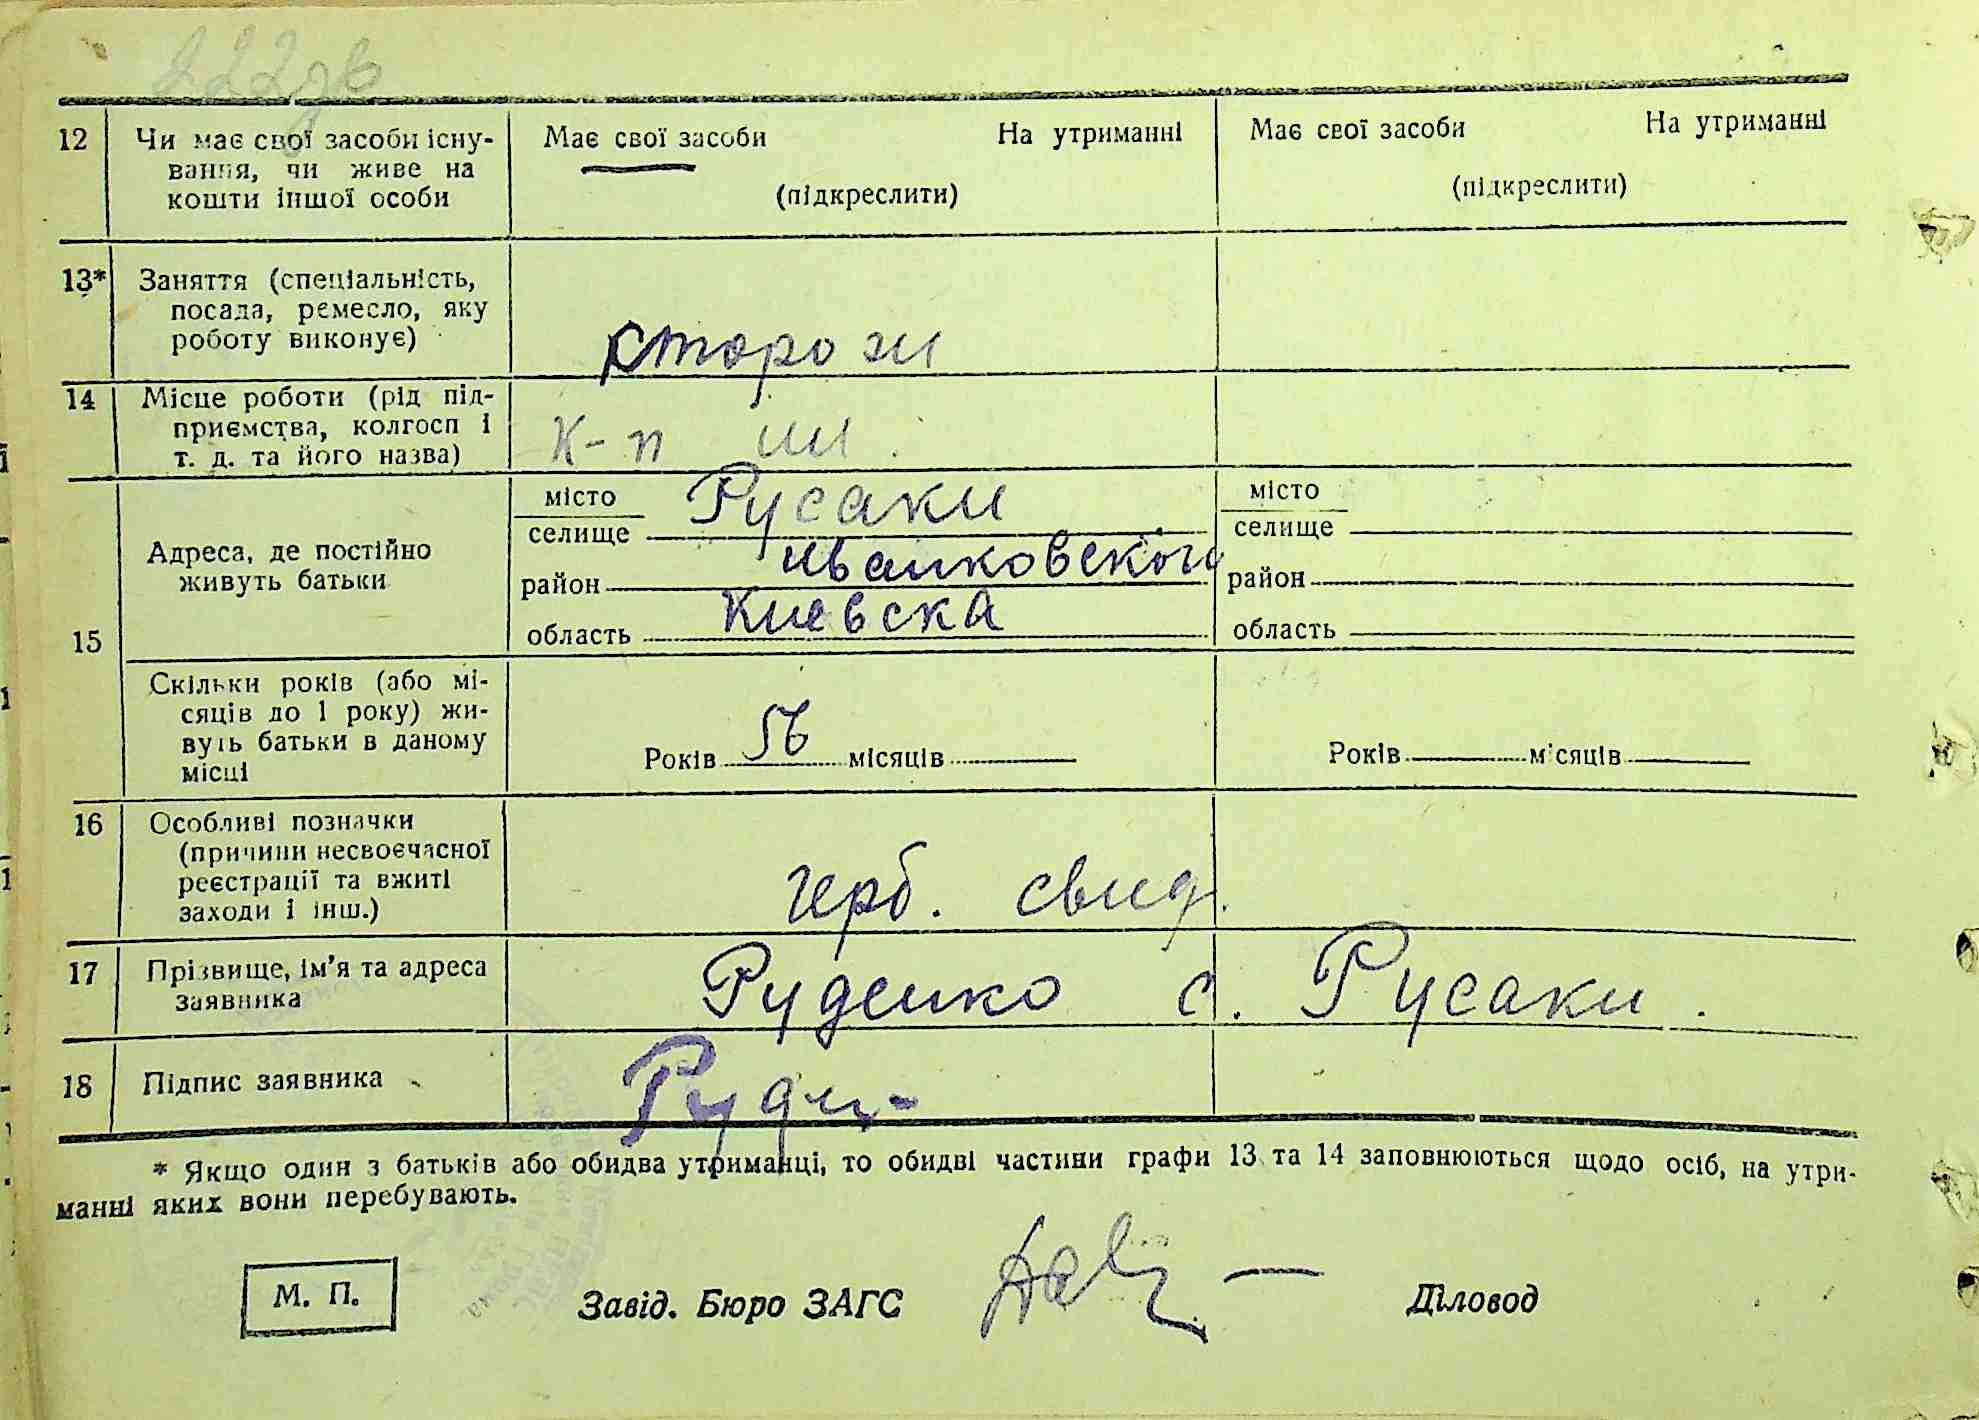 222зв
12 Чи має свої засоби існу- Має свої засоби На утриманні Має свої засоби На утриманні
вання, чи живе на
кошти іншої особи (підкреслити) (підкреслити)
13* Заняття (спеціальність,
посада, ремесло, яку
роботу виконує) сторож
14 Місце роботи (рід під-
приємства, колгосп і
т. д. та його назва) к-п
15 Адреса, де постійно живуть батьки
місто Русаки місто
селище селище
район иванковского район
область Киевска область
Скільки років (або мі-
сяців до 1 року) жи-
вуть батьки в даному
місці Років 56 місяців Років місяців
16 Особливі позначки
(причини несвоєчасної
реєстрації та вжиті
заходи і інш.) герб. свид.
17 Прізвище, ім'я та адреса
заявника Руденко с. Русаки.
18 Підпис заявника Руден
* Якщо один з батьків або обидва утриманці, то обидві частини графи 13 та 14 заповнюються щодо осіб, на утри-
манні яких вони перебувають.
М. П. Завід. Бюро ЗАГС Діловод